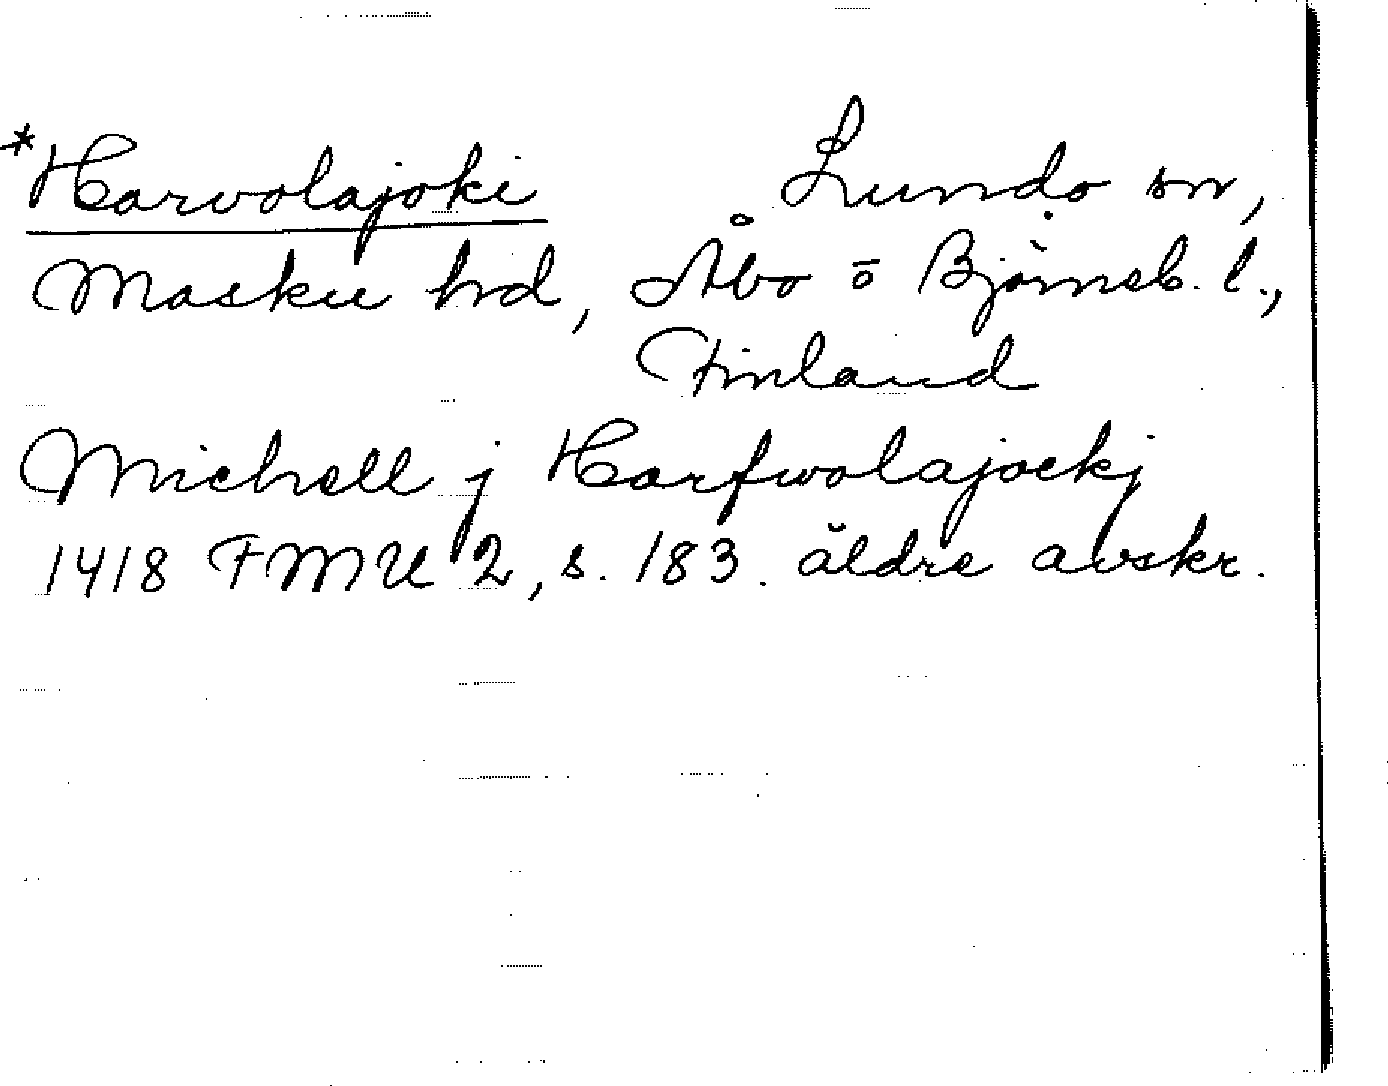 *Harvolajoki Lundo sn,
Masku hd, Åbo o Björneb. l.,
Finland
Michell j Harfwolajockj
1418 FMU 2, s. 183. äldre avskr.